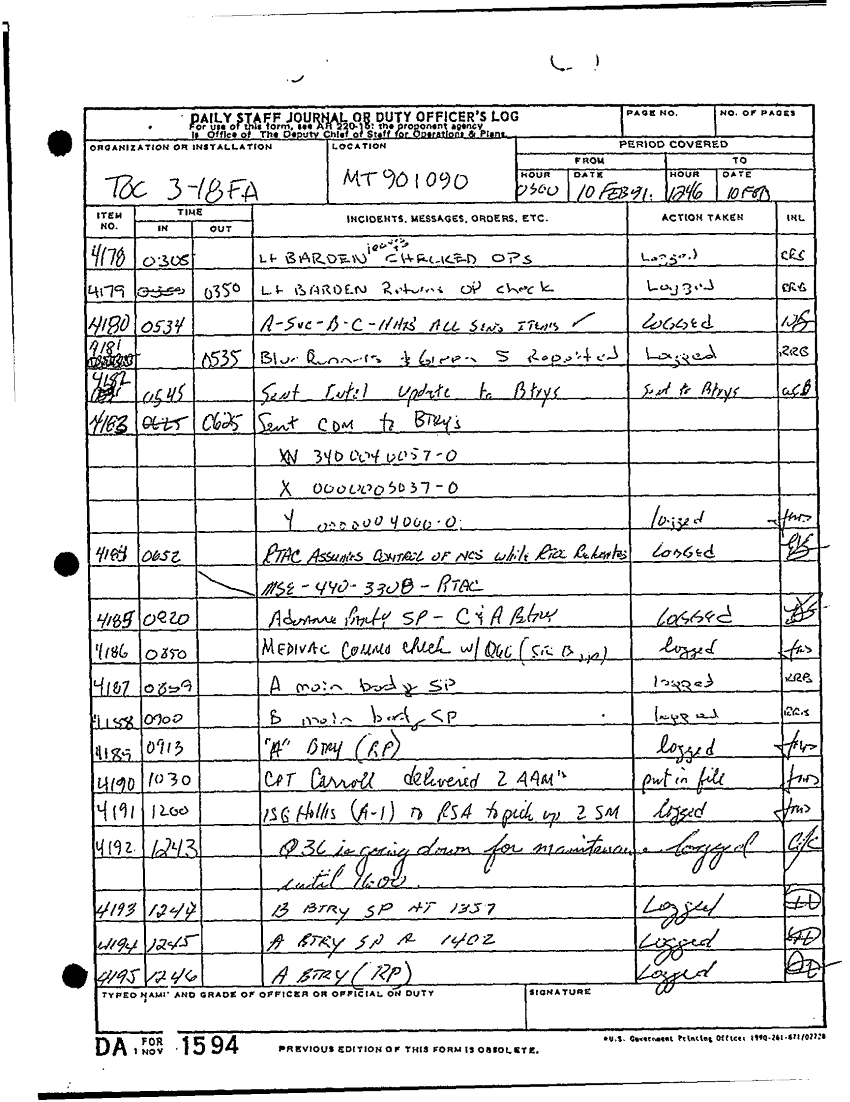 DAILY STAFF JOURNAL OR DUTY OFFICER'S LOG
For use of this form, see AR 220-15; the proponent agency
is Office of The Deputy Chief of Staff for Operations & Plans.
PAGE NO.
NO. OF PAGES
ORGANIZATION OR INSTALLATION
TOC 3-18FA
LOCATION
MT901090
PERIOD COVERED
FROM TO
HOUR DATE HOUR DATE
0300 10 FEB 91 1246 10 FEB
ITEM NO. TIME IN OUT INCIDENTS, MESSAGES, ORDERS, ETC. ACTION TAKEN INL
4178 0305 Lt BARDEN leaves CHECKED OPs Logged
4179 0350 0350 Lt BARDEN Returns OP check Logged RRB
4180 0534 A-Svc-B-C-HHB ALL Sens Items ✓ Logged
4181 0535 Blue Runners & Green 5 Reported Logged RRB
4182 0545 Sent Intel update to Btrys Sent to Btrys
4183 0625 0625 Sent CDM to BTRY's
XN 3400040057-0
X 0000005037-0
Y 0000004000-0 logged
4184 0652 RTAC Assumes Control of NCS while Relocates Logged
MSE-440-3308-RTAC
4185 0820 Advance Party SP - C & A Btrys Logged
4186 0850 MEDIVAC Commo check w/ logged
4187 0859 A main body SP logged RRB
4188 0900 B main body SP logged RRB
4189 0913 "A" BTRY (RP) logged
4190 1030 CPT Carroll delivered 2 AAM's put in file
4191 1200 1SG Hollis (A-1) to RSA to pick up 2 SM logged
4192 1243 Q36 is going down for maintenance logged
until 1600.
4193 1244 B BTRY SP AT 1357 Logged
4194 1245 A BTRY SP @ 1402 Logged
4195 1246 A BTRY (RP) Logged
TYPED NAME AND GRADE OF OFFICER OR OFFICIAL ON DUTY
SIGNATURE
DA FOR 1 NOV 1594
PREVIOUS EDITION OF THIS FORM IS OBSOLETE.
*U.S. Government Printing Office: 1990-261-871/07728